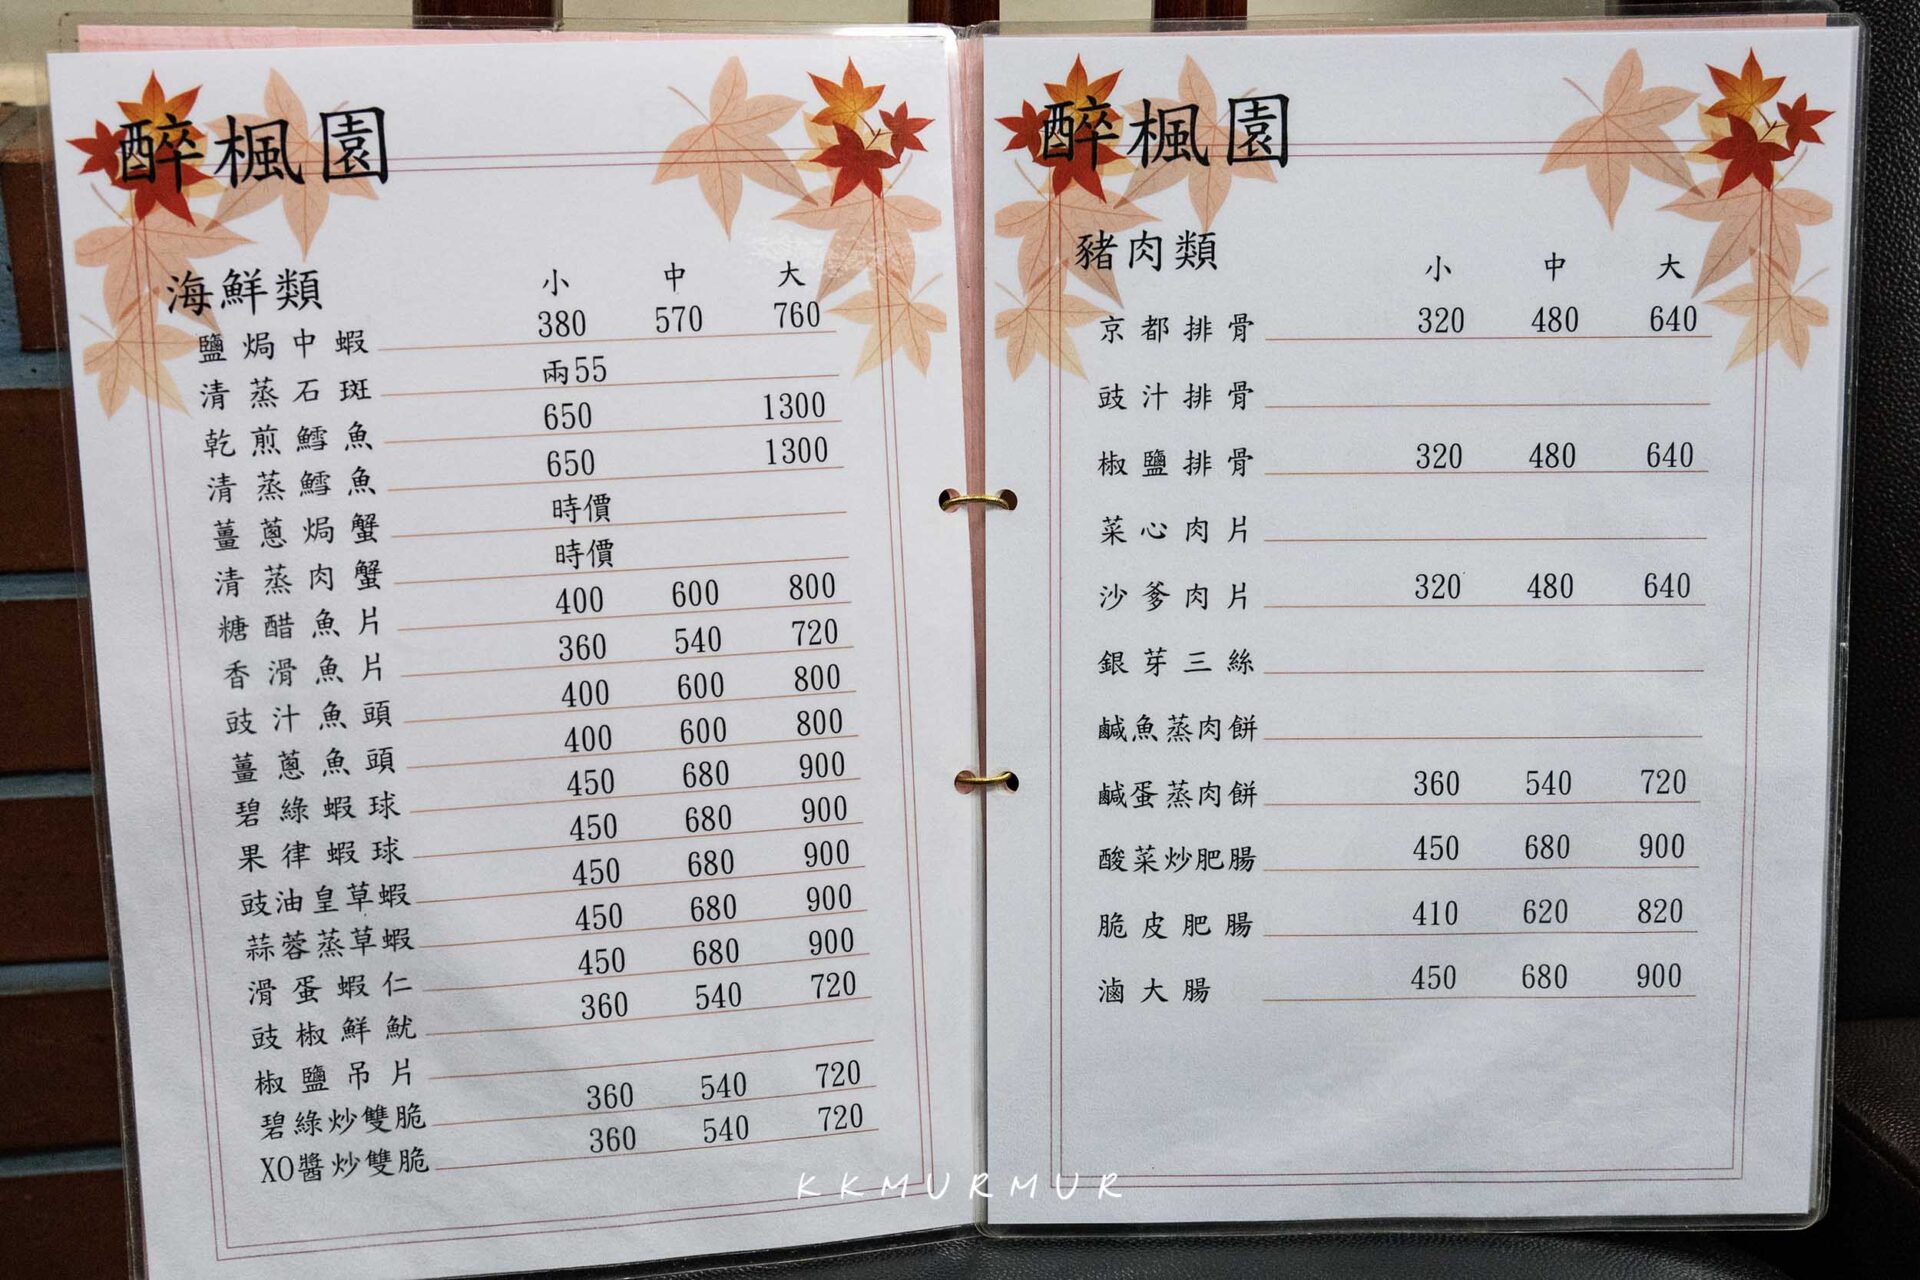 醉楓園
海鮮類 小 中 大
鹽焗中蝦 380 570 760
清蒸石斑 兩55
乾煎鱈魚 650 1300
清蒸鱈魚 650 1300
薑蔥焗蟹 時價
清蒸肉蟹 時價
糖醋魚片 400 600 800
香滑魚片 360 540 720
豉汁魚頭 400 600 800
薑蔥魚頭 400 600 800
碧綠蝦球 450 680 900
果律蝦球 450 680 900
豉油皇草蝦 450 680 900
蒜蓉蒸草蝦 450 680 900
滑蛋蝦仁 450 680 900
豉椒鮮魷 360 540 720
椒鹽吊片
碧綠炒雙脆 360 540 720
XO醬炒雙脆 360 540 720
醉楓園
豬肉類 小 中 大
京都排骨 320 480 640
豉汁排骨
椒鹽排骨 320 480 640
菜心肉片
沙爹肉片 320 480 640
銀芽三絲
鹹魚蒸肉餅
鹹蛋蒸肉餅 360 540 720
酸菜炒肥腸 450 680 900
脆皮肥腸 410 620 820
滷大腸 450 680 900
KKMURMUR